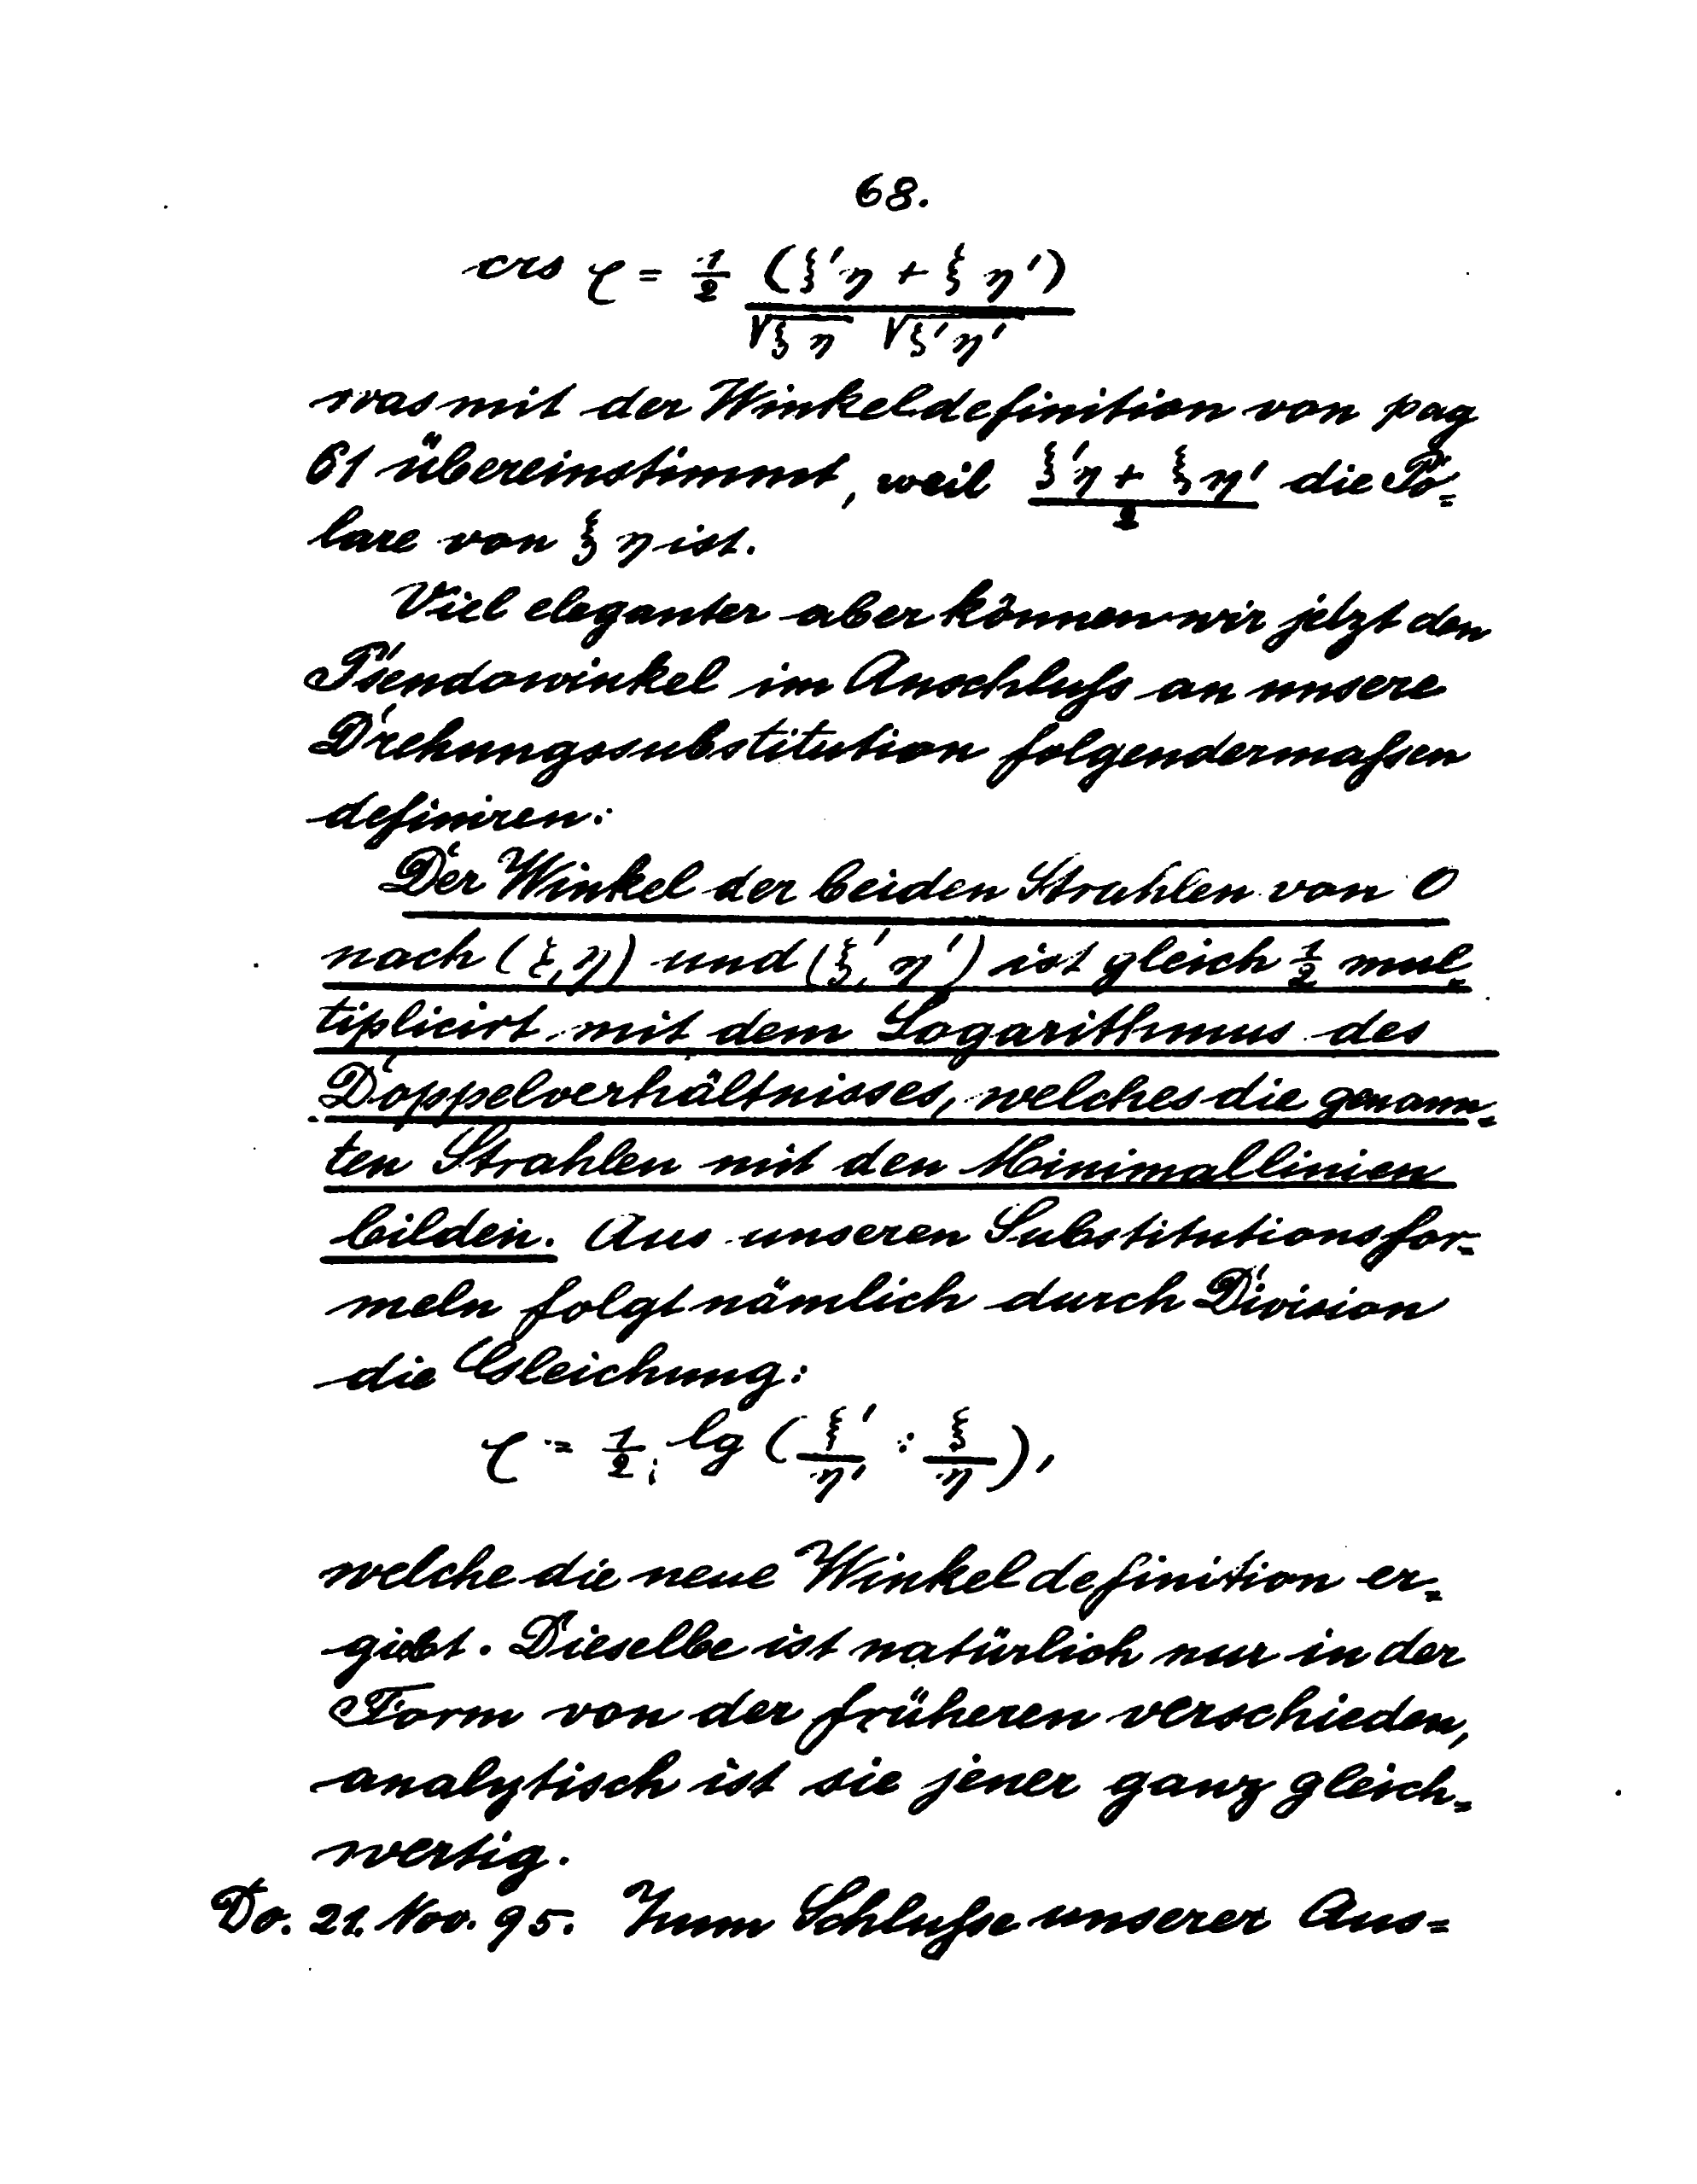 68.
crs τ = 1/2 (ξ'η + ξ η') / √ξ η √ξ'η'
was mit der Winkeldefinition von pag
61 übereinstimmt, weil (ξ'η + ξη')/2 die Po=
lare von ξ η ist.
Viel eleganter aber können wir jetzt den
Pseudowinkel im Anschluſs an unsere
Drehungssubstitution folgendermaſsen
definiren:
Der Winkel der beiden Strahlen von O
nach (ξ,η) und (ξ', η') ist gleich 1/2 mul=
tiplicirt mit dem Logarithmus des
Doppelverhältnisses, welches die genann=
ten Strahlen mit den Minimallinien
bilden. Aus unseren Substitutionsfor=
meln folgt nämlich durch Division
die Gleichung:
τ = 1/2 lg (ξ'/η' : ξ/η),
welche die neue Winkeldefinition er=
giebt. Dieselbe ist natürlich nur in der
Form von der früheren verschieden,
analytisch ist sie jener ganz gleich=
wertig.
Do. 21. Nov. 95. Zum Schluſse unserer Aus=